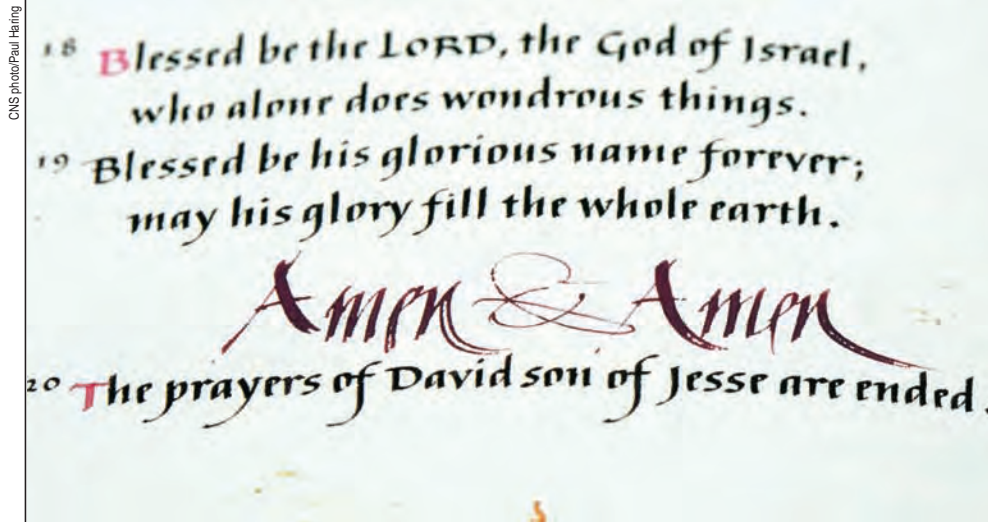 CNS photo/Paul Haring
18 Blessed be the LORD, the God of Israel,
who alone does wondrous things.
19 Blessed be his glorious name forever;
may his glory fill the whole earth.
Amen & Amen
20 The prayers of David son of Jesse are ended.